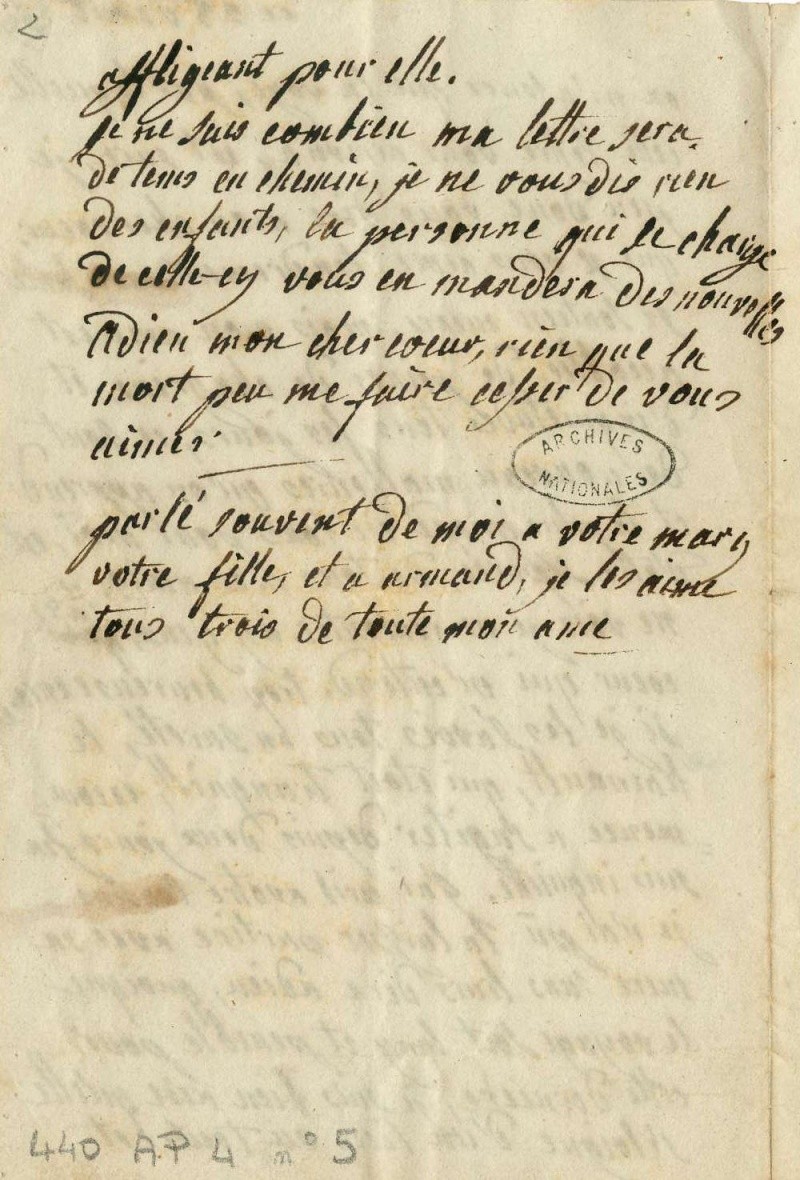 2
affligeant pour elle.
je ne sais combien ma lettre sera
de tems en chemin, je ne vous dis rien
des enfants, la personne qui se charge
de celle-cy vous en mandera des nouvelles
Adieu mon cher coeur, rien que la
mort peu me faire cesser de vous
aimer
ARCHIVES
NATIONALES
parlé souvent de moi a votre mary
votre fille, et a armand, je les aime
tous trois de toute mon ame
440 AP 4 n° 5